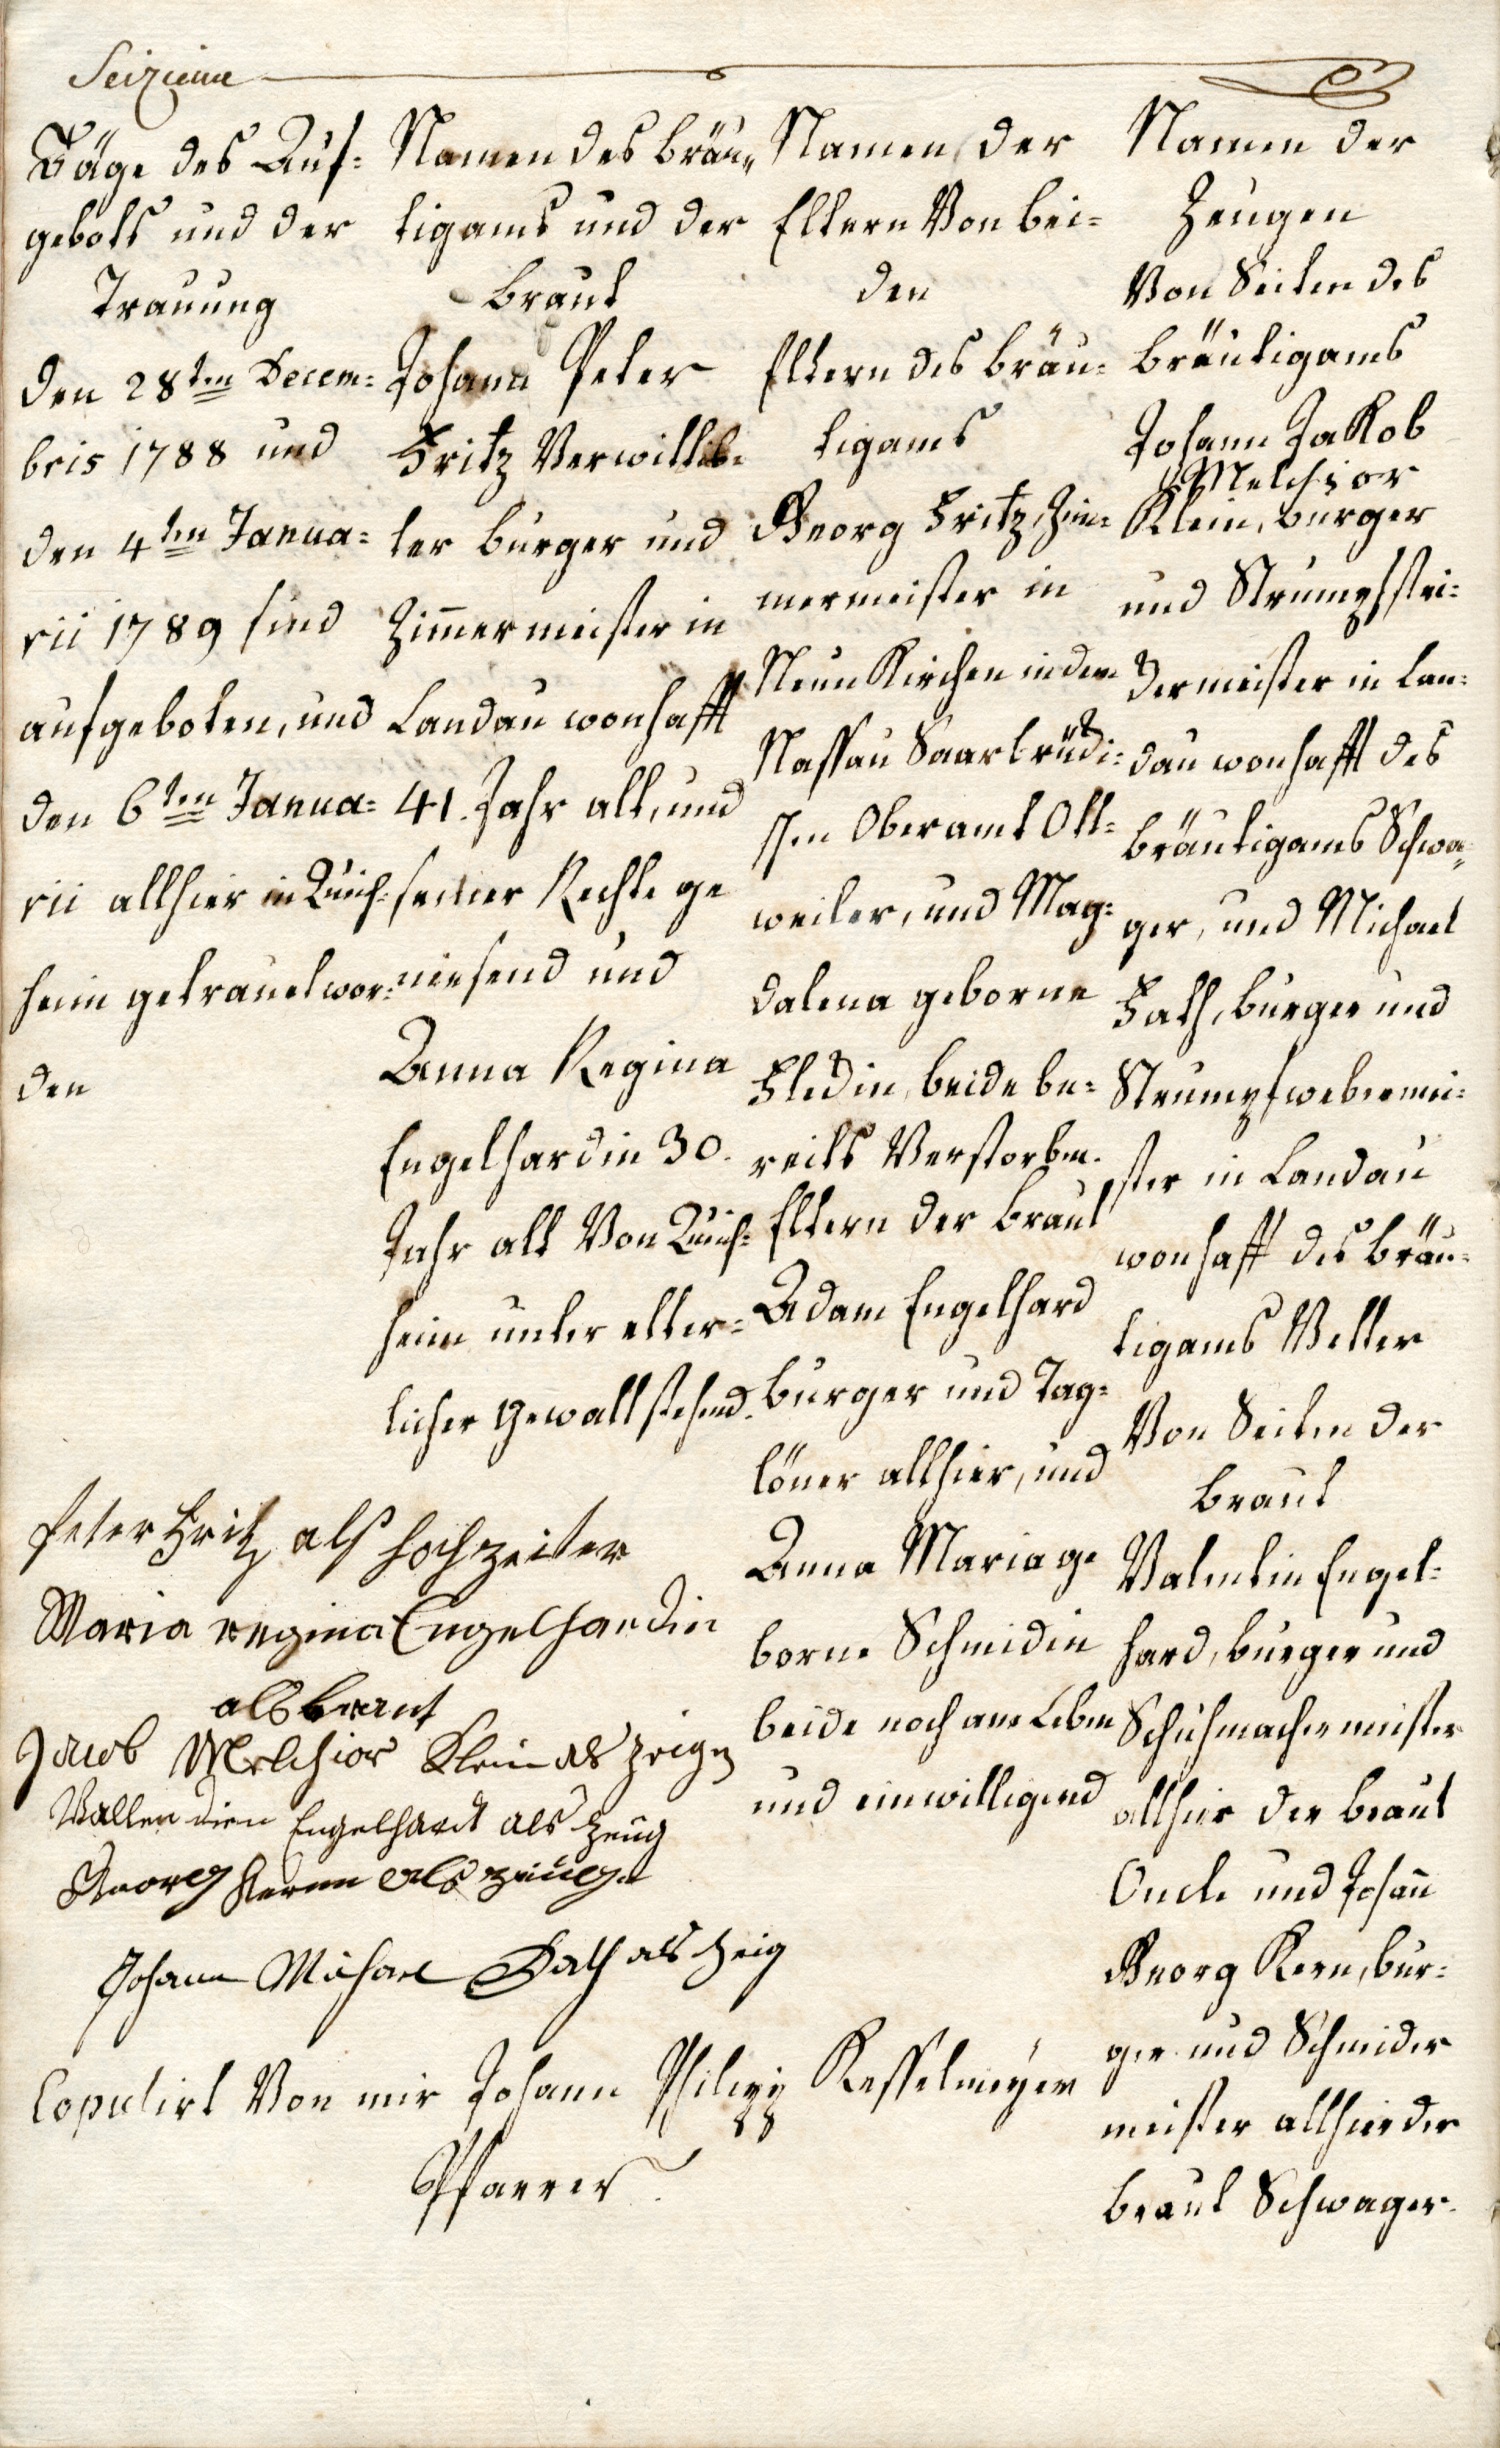 Seizieme
Täge des Auf=
gebots und der
Trauung
den 28ten Decem=
bris 1788 und
den 4ten Janua=
rii 1789 sind
aufgeboten, und
den 6ten Janua=
rii allhier in Quich=
heim getrauet wor=
den
Namen des bräu„
tigams und der
braut
Johann Peter
Fritz Verwittib=
ter burger und
Zim̄ermeister in
Landau wonhafft
41. Jahr alt, und
seiner Rechte ge
niesend und
Anna Regina
Engelhardin 30.
Jahr alt Von Quich=
heim unter elter=
licher Gewalt stehend.
Namen der
Eltern Von bei=
den
Eltern des bräu=
tigams
Georg Fritz, Zim=
mermeister in
Neun Kirchen in dem
Nassau Saarbrücki=
schen Oberamt Ott=
weiler, und Mag=
dalena geborne
Fleckin, beide be=
reits Verstorben.
Eltern der braut
Adam Engelhard
burger und Tag=
löner allhier, und
Anna Maria ge
borne Schmidin
beide noch am Leben
und einwilligend
Namen der
Zeugen
Von Seiten des
bräutigams
Johann Jakob
Melchior
Klein, burger
und Strumpfstri=
ckermeister in Lan=
dau wonhafft des
bräutigams Schwa„
ger, und Michael
Fath, burger und
Strumpfwebermei=
ster in Landau
wonhafft des bräu=
tigams Vetter
Von Seiten der
braut
Valentin Engel=
hard, burger und
Schuhmachermeister
allhier der braut
Oncle und Johan̄
Georg Kern, bur=
ger und Schneider
meister allhier der
braut Schwager.
Peter Fritz als hochzeiter
Maria regina Engelhardin
als braut
Jacob Melchior Klein als zeigen
Vallendien Engelhardt als Zeug
Georg Kern als zeuge
Johann Michael Fath als Zeig
Copulirt Von mir Johann Philipp Kesselmeyer
Pfarrer.